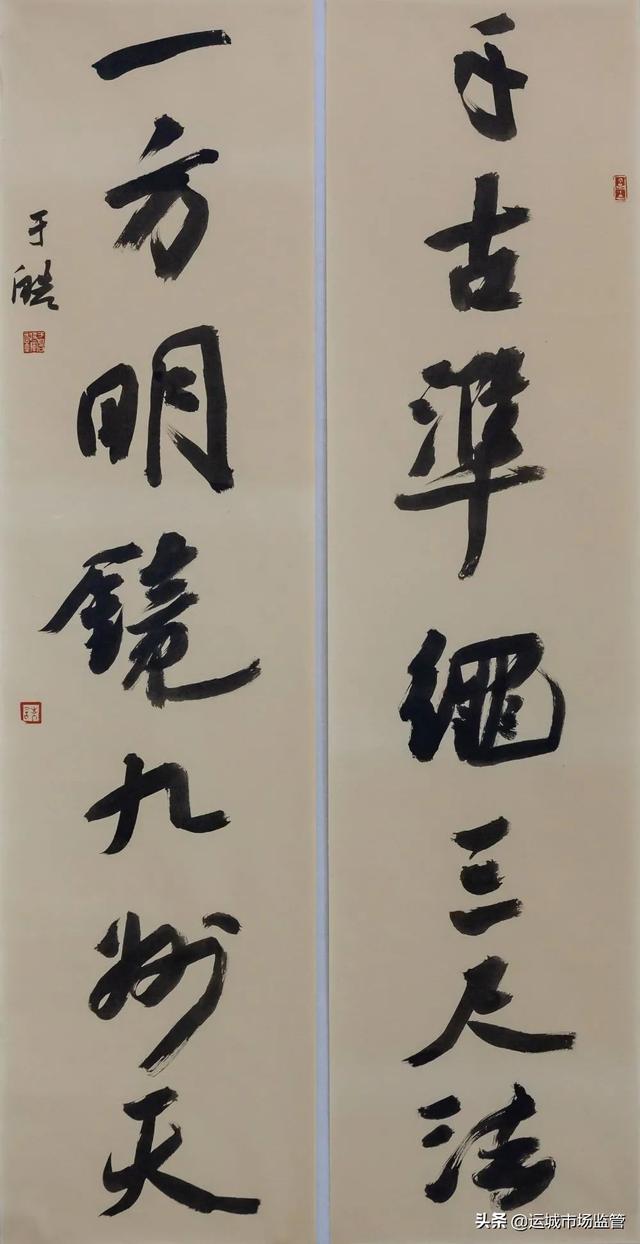 千古準繩三尺法
一方明鏡九州天
于
头条 @运城市场监管